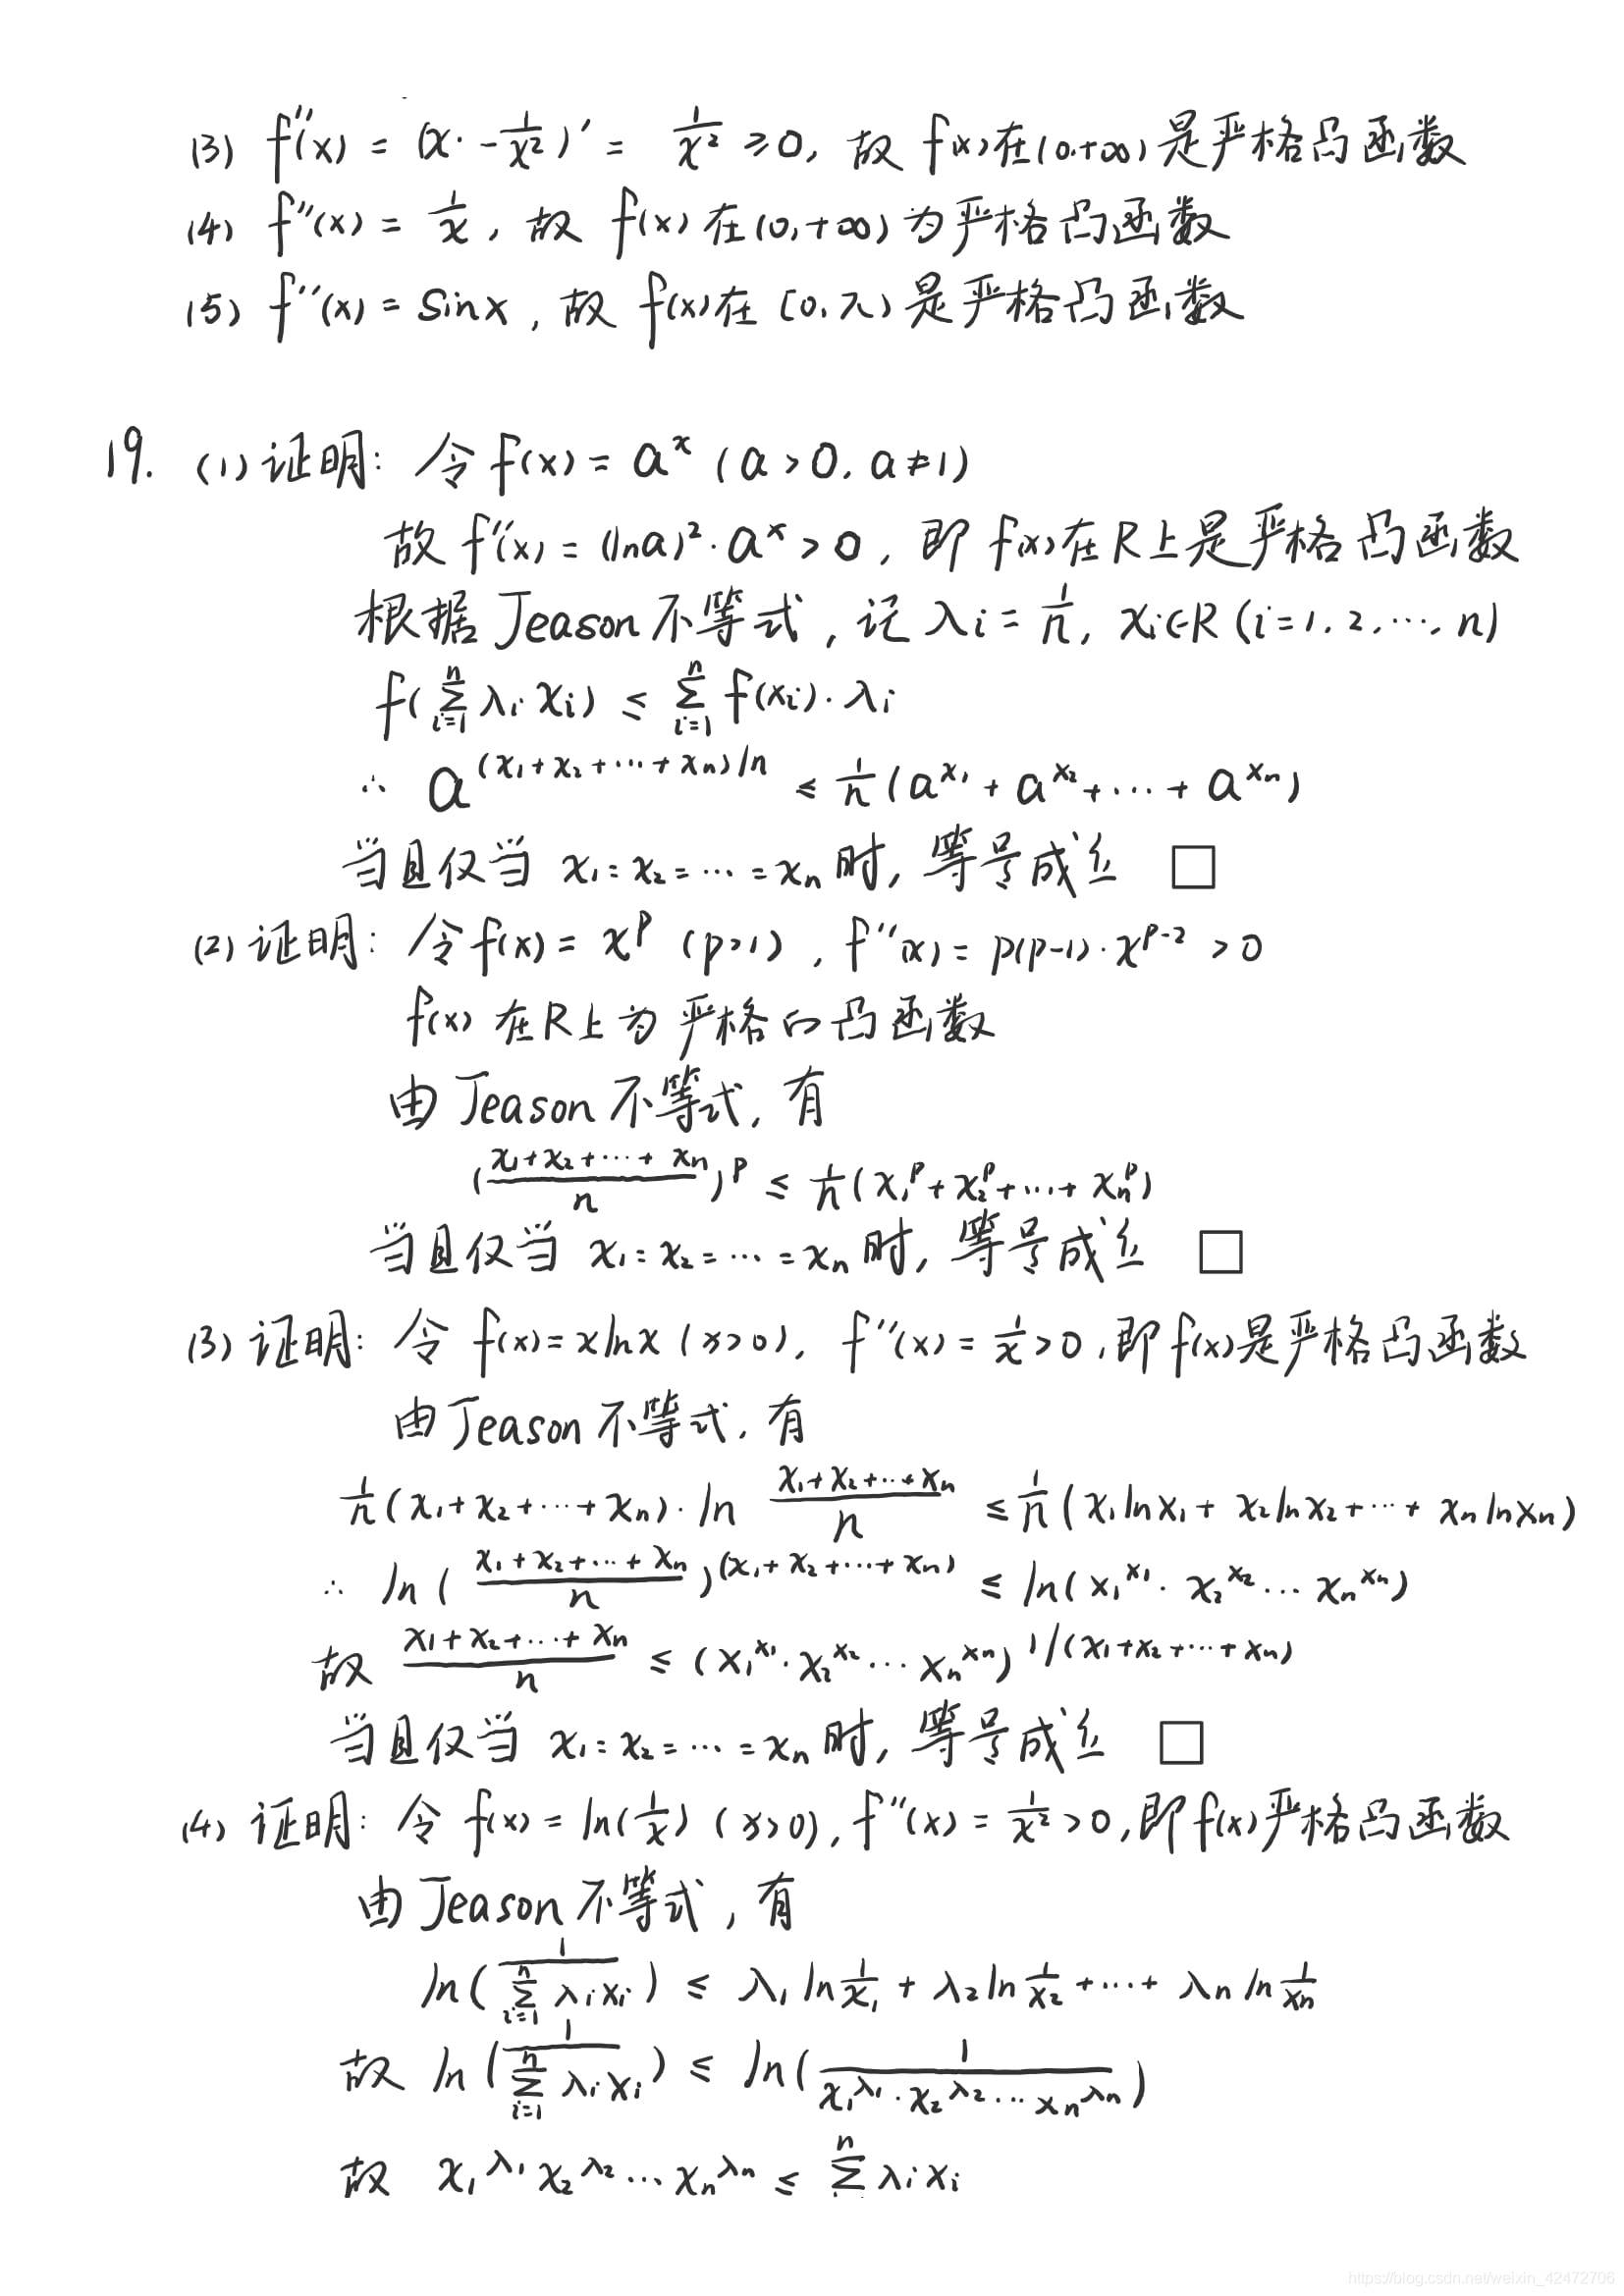 (3) f''(x) = (x·-1/x²)' = 1/x² ≥0, 故 f(x)在(0,+∞)是严格凸函数
(4) f''(x) = 1/x, 故 f(x)在(0,+∞)为严格凸函数
(5) f''(x) = sinx, 故 f(x)在[0,π)是严格凸函数
19. (1) 证明: 令f(x) = a^x (a>0, a≠1)
故f''(x) = (lna)²·a^x > 0, 即 f(x)在R上是严格凸函数
根据Jeason不等式, 记 λi = 1/n, xi∈R (i=1,2,…,n)
f(∑_{i=1}^{n} λi·xi) ≤ ∑_{i=1}^{n} f(xi)·λi
∴ a^{(x1+x2+…+xn)/n} ≤ 1/n (a^{x1} + a^{x2} + … + a^{xn})
当且仅当 x1=x2=…=xn时, 等号成立 □
(2) 证明: 令f(x) = x^p (p>1), f''(x) = p(p-1)·x^{p-2} > 0
f(x) 在R上为严格的凸函数
由Jeason不等式, 有
((x1+x2+…+xn)/n)^p ≤ 1/n (x1^p+x2^p+…+xn^p)
当且仅当 x1=x2=…=xn时, 等号成立 □
(3) 证明: 令 f(x)=xlnx (x>0), f''(x) = 1/x > 0, 即f(x)是严格凸函数
由Jeason不等式, 有
1/n (x1+x2+…+xn)·ln (x1+x2+…+xn)/n ≤ 1/n (x1lnx1 + x2lnx2+…+ xnlnxn)
∴ ln ((x1+x2+…+xn)/n)^{(x1+x2+…+xn)} ≤ ln(x1^{x1}·x2^{x2}…xn^{xn})
故 (x1+x2+…+xn)/n ≤ (x1^{x1}·x2^{x2}…xn^{xn})^{1/(x1+x2+…+xn)}
当且仅当 x1=x2=…=xn时, 等号成立 □
(4) 证明: 令 f(x) = ln(1/x) (x>0), f''(x) = 1/x² > 0, 即f(x)严格凸函数
由Jeason不等式, 有
ln(1/(∑_{i=1}^{n} λixi)) ≤ λ1ln1/x1 + λ2ln1/x2 +…+ λnln1/xn
故 ln(1/(∑_{i=1}^{n} λixi)) ≤ ln(1/(x1^{λ1}·x2^{λ2}…xn^{λn}))
故 x1^{λ1}x2^{λ2}…xn^{λn} ≤ ∑^{n} λixi
https://blog.csdn.net/weixin_42472706